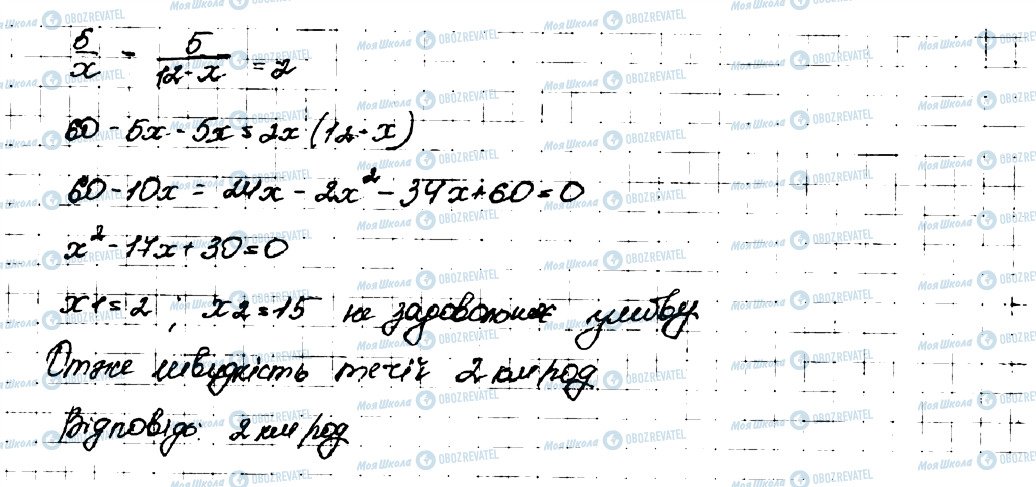 5/x - 5/(12-x) = 2
60 - 5x - 5x = 2x(12-x)
60 - 10x = 24x - 2x² - 34x + 60 = 0
x² - 17x + 30 = 0
x1 = 2 ; x2 = 15 не задовольняє умову
Отже швидкість течії 2 км/год
Відповідь: 2 км/год